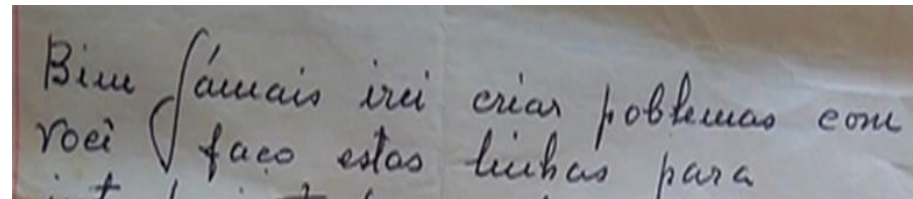 Bim Jámais irei criar poblemas com
Você faço estas linhas para